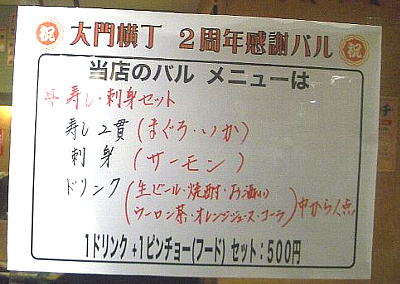 祝 大門横丁 2周年感謝バル 祝
当店のバル メニューは
寿し・刺身セット
寿し2貫(まぐろ・いか)
刺身(サーモン)
ドリンク(生ビール・焼酎・乃酒い
ウーロン茶・オレンジジュース・コーラ)中から1点
1ドリンク+1ピンチョー(フード) セット:500円